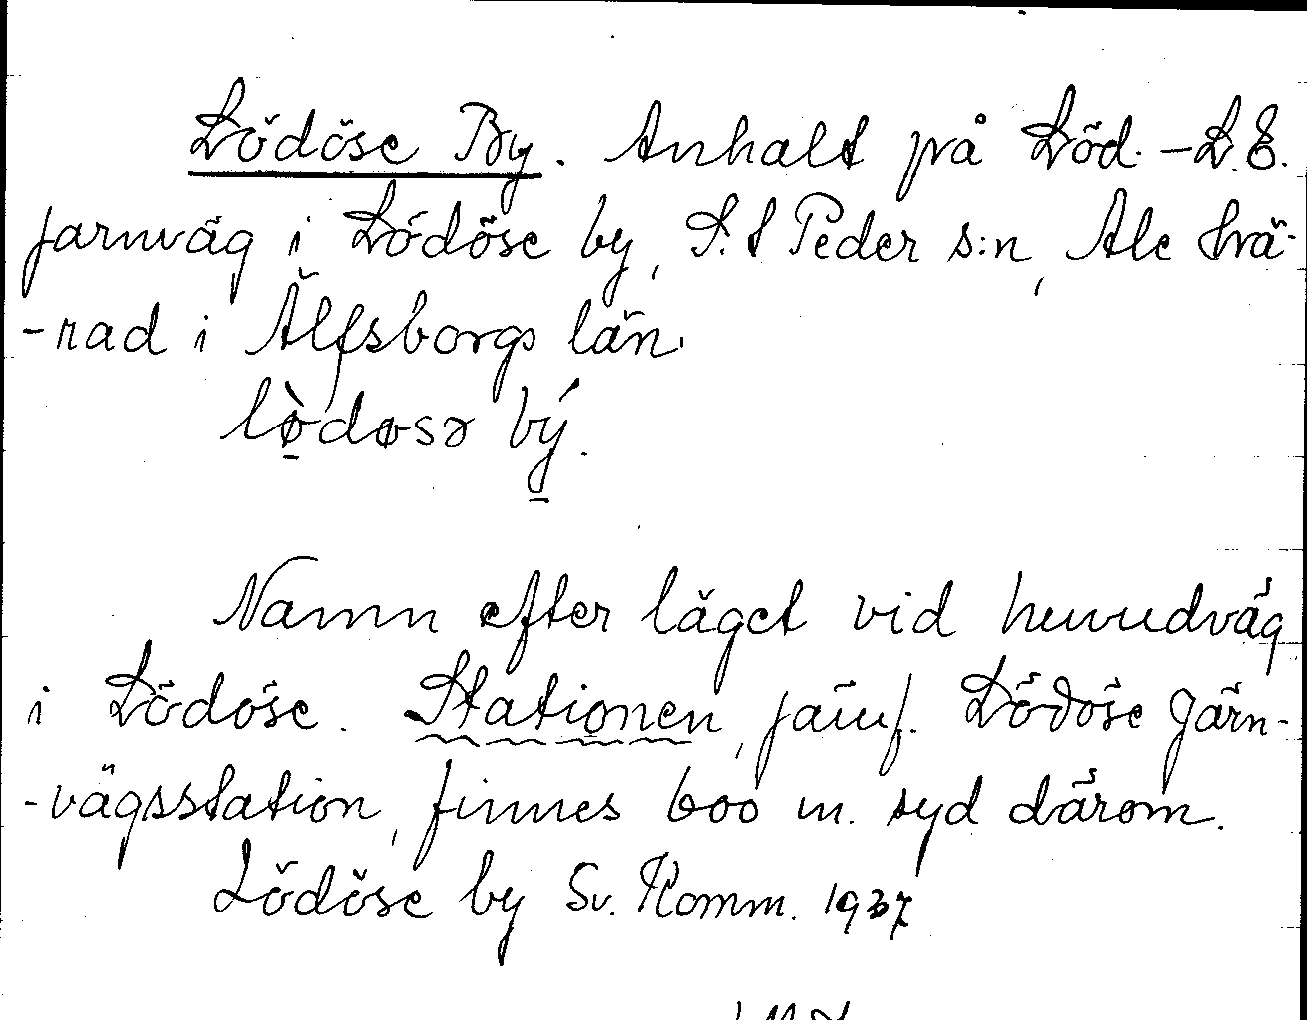 Lödöse By. Anhalt på Löd. - L.E.
järnväg i Lödöse by, S:t Peder s:n, Ale hä-
-rad i Älfsborgs län.
lø̀døsə bý.
Namn efter läget vid huvudväg
i Lödöse. Stationen, jämf. Lödöse Järn-
-vägsstation, finnes 600 m. syd därom.
Lödöse by Sv. Komm. 1937